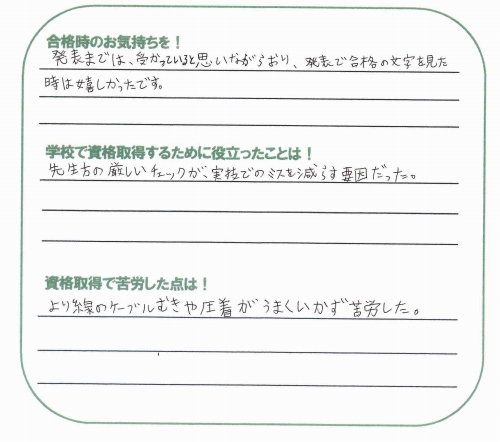 合格時のお気持ちを！
発表までは、受かっていると思いながらおり、発表で合格の文字を見た
時は嬉しかったです。
学校で資格取得するために役立ったことは！
先生方の厳しいチェックが、実技でのミスを減らす要因だった。
資格取得で苦労した点は！
より線のケーブルむきや圧着がうまくいかず苦労した。